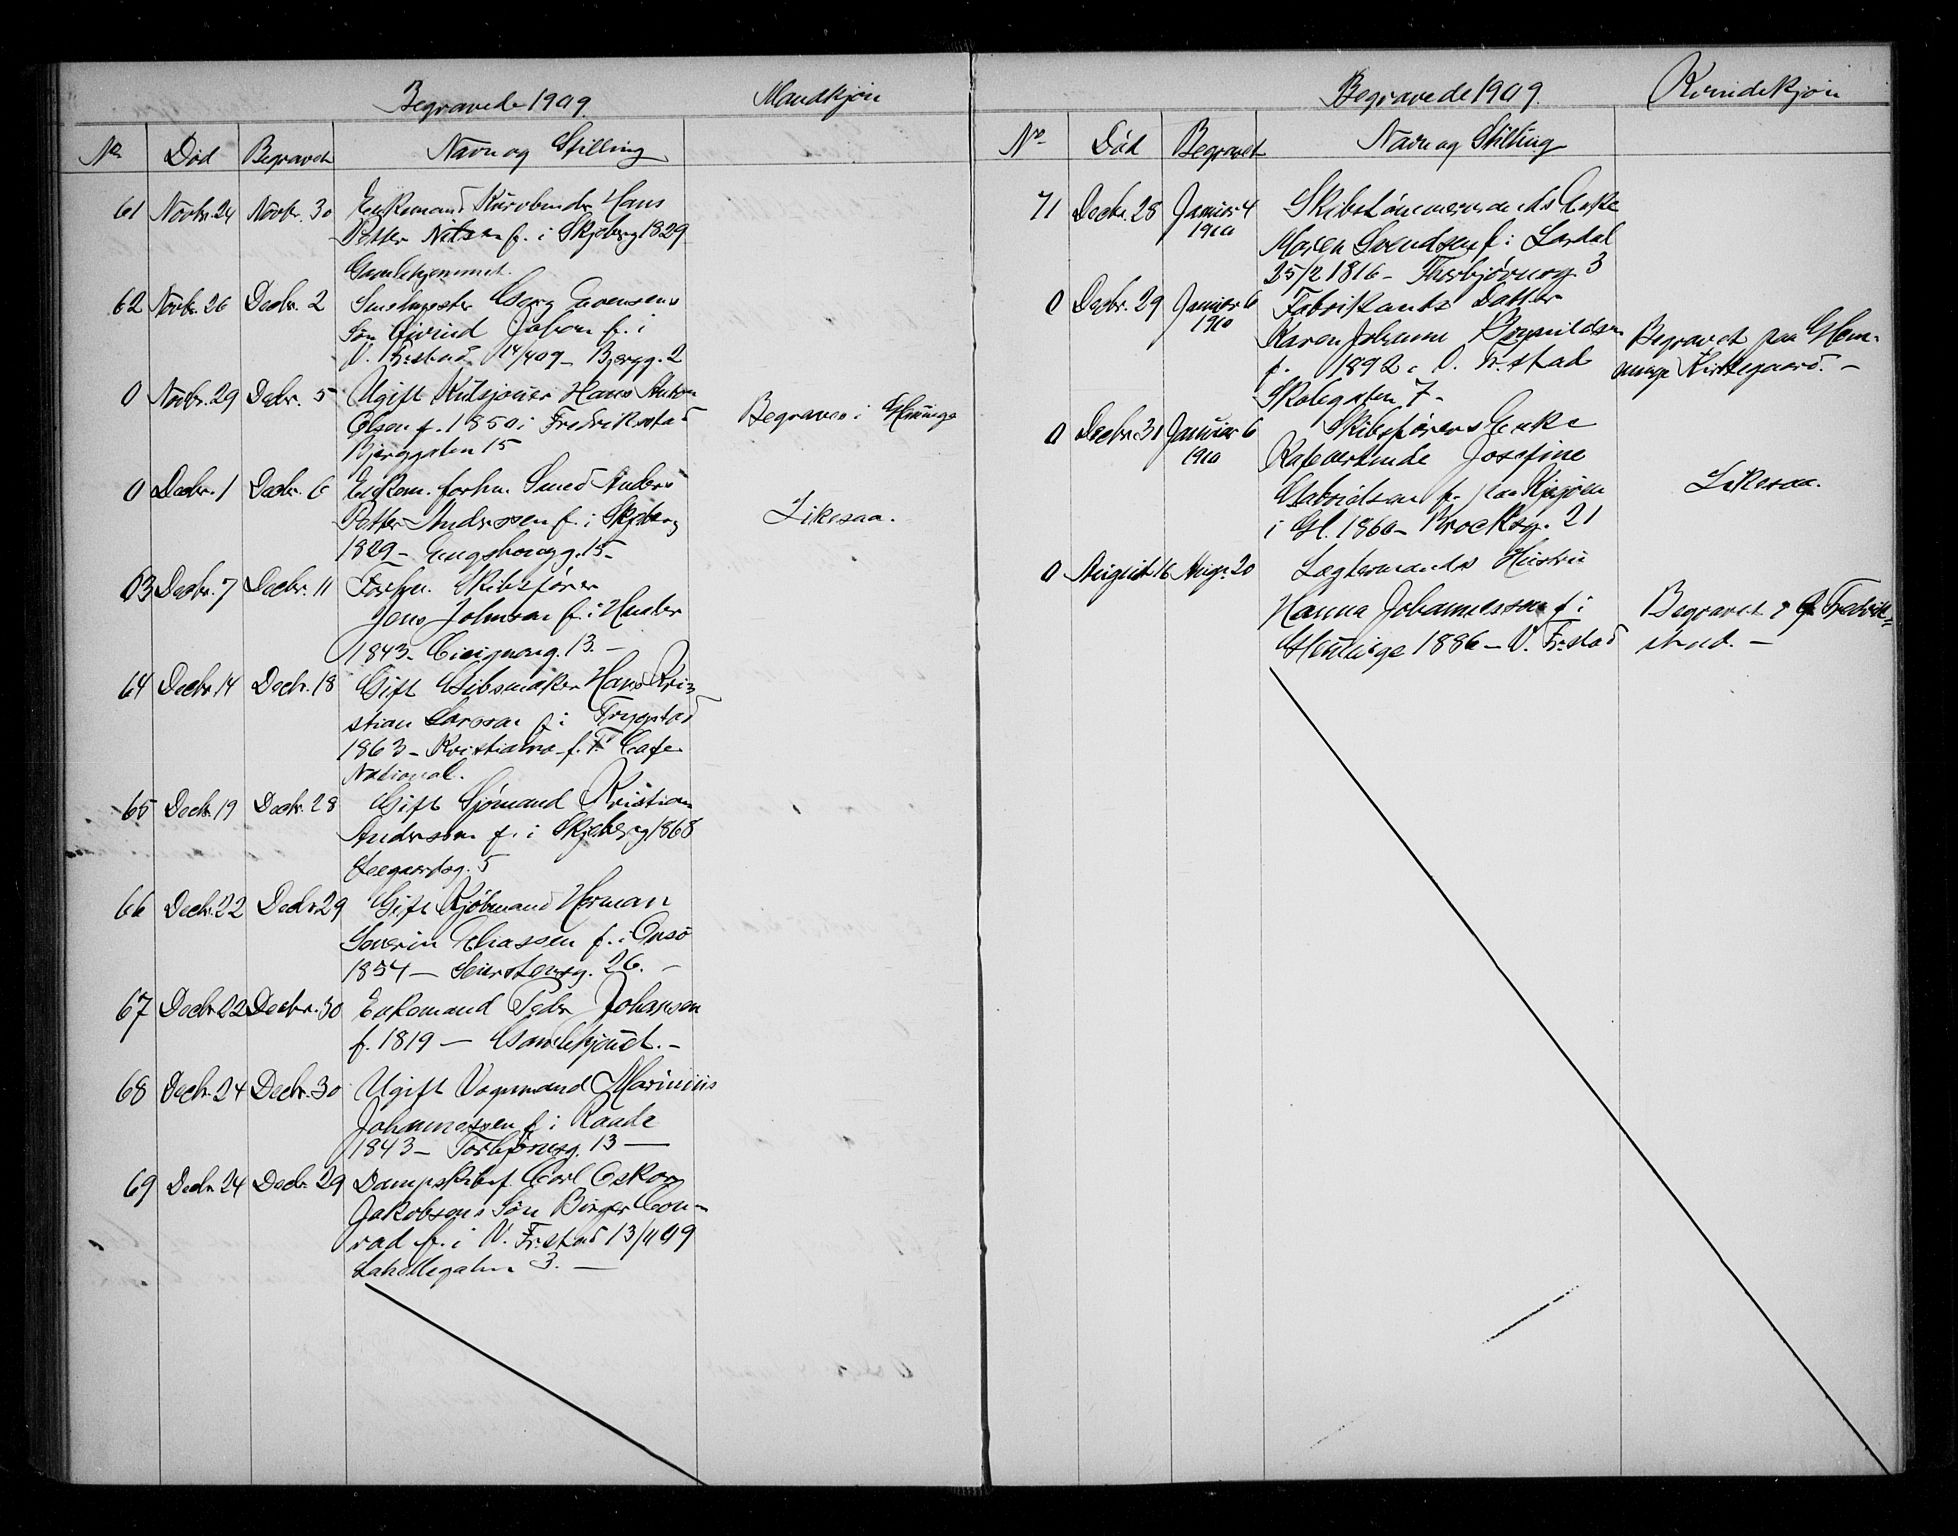 Begravede 1909. Mandkjøn
No Død Begravet Navn og Stilling
61 Novbr. 24 Novbr. 30 Enkemand Kurvbinder Hans
Petter Nilsen f. i Skjeberg 1829
Gamlehjemmet.
62 Novbr. 26 Decbr. 2 Georg Evensens
Søn Eivind Johan f. i
V. Fr.stad 14/4 09 – Bjergg. 2
0 Novbr. 29 Decbr. 5 Ugift Hans Anton
Olsen f. 1850 i Fredrikstad Begraves i Glemminge
Bjerggaten 15
0 Decbr. 1 Decbr. 6 Enkem. forhv. Smed Anders
Petter Andersen f. i Skjeberg Likesaa.
1829 – 15 –
63 Decbr. 7 Decbr. 11 Forhv. Skibsfører
Jens Johnsen f. i
1843 – 13. –
64 Decbr. 14 Decbr. 18 Gift Gibsmaker Hans Kri-
stian Larsen f. i Trygstad
1863 – Kristiania – f. T. Cafe
National.
65 Decbr. 19 Decbr. 28 Gift Sjømand Kristian
Andersen f. i Skjeberg 1868
5
66 Decbr. 22 Decbr. 29 Gift Kjøbmand Herman
Severin Eliassen f. i Onsø
1854 – Seierstensg. 26. –
67 Decbr. 22 Decbr. 30 Enkemand Peder Johansen
f. 1819 – Gamlehjemmet. –
68 Decbr. 24 Decbr. 30 Ugift Vognmand Marinius
Johannessen f. i Raade
1843 – Torbjørnsg. 13 –
69 Decbr. 24 Decbr. 29 Dampskibsf. Carl Oskar
Jakobsens Søn Birger Con-
rad f. i V. Fr.stad 13/11 09
Labellegaten 3. –
Begravede 1909. Kvindekjøn
No Død Begravet Navn og Stilling
71 Decbr. 28 Januar 4 Skibstømmermands Enke
1910 Maren Svendsen f. i Lardal
25/2 1816 – Thorbjørnsg. 3
0 Decbr. 29 Januar 6 Fabrikants Datter
1910 Karen Johanne Begravet paa Glem-
f. 1892 i V. Fr.stad minge Kirkegaard. –
Skolegaten 7 –
0 Decbr. 31 Januar 6 Skibsførers Enke
1910 Kafevertinde Josefine
Gabrielsen f. paa Kjøgøen Likesaa.
i Gl. 1860 – Brocksg. 21
0 August 16 Aug. 20 Lægtermands Hustru
Hanna Johannessen f. i Begravet i Gl. Fredrik-
Glemminge 1886 – V. Fr.stad stad. –